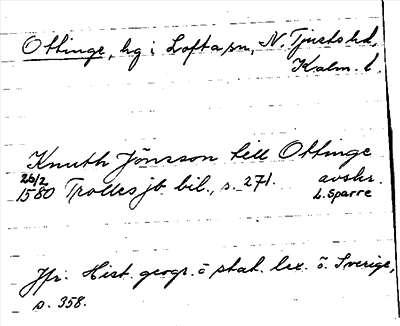 Ottinge, hg i Lofta sn, N. Tjusts hd,
Kalm. l.
Knuth Jönsson till Ottinge
26/2 1580 Trolles jb bil., s. 271. avskr.
L. Sparre
Jfr. Hist. geogr. o stat. lex. ö. Sverige,
s. 358.